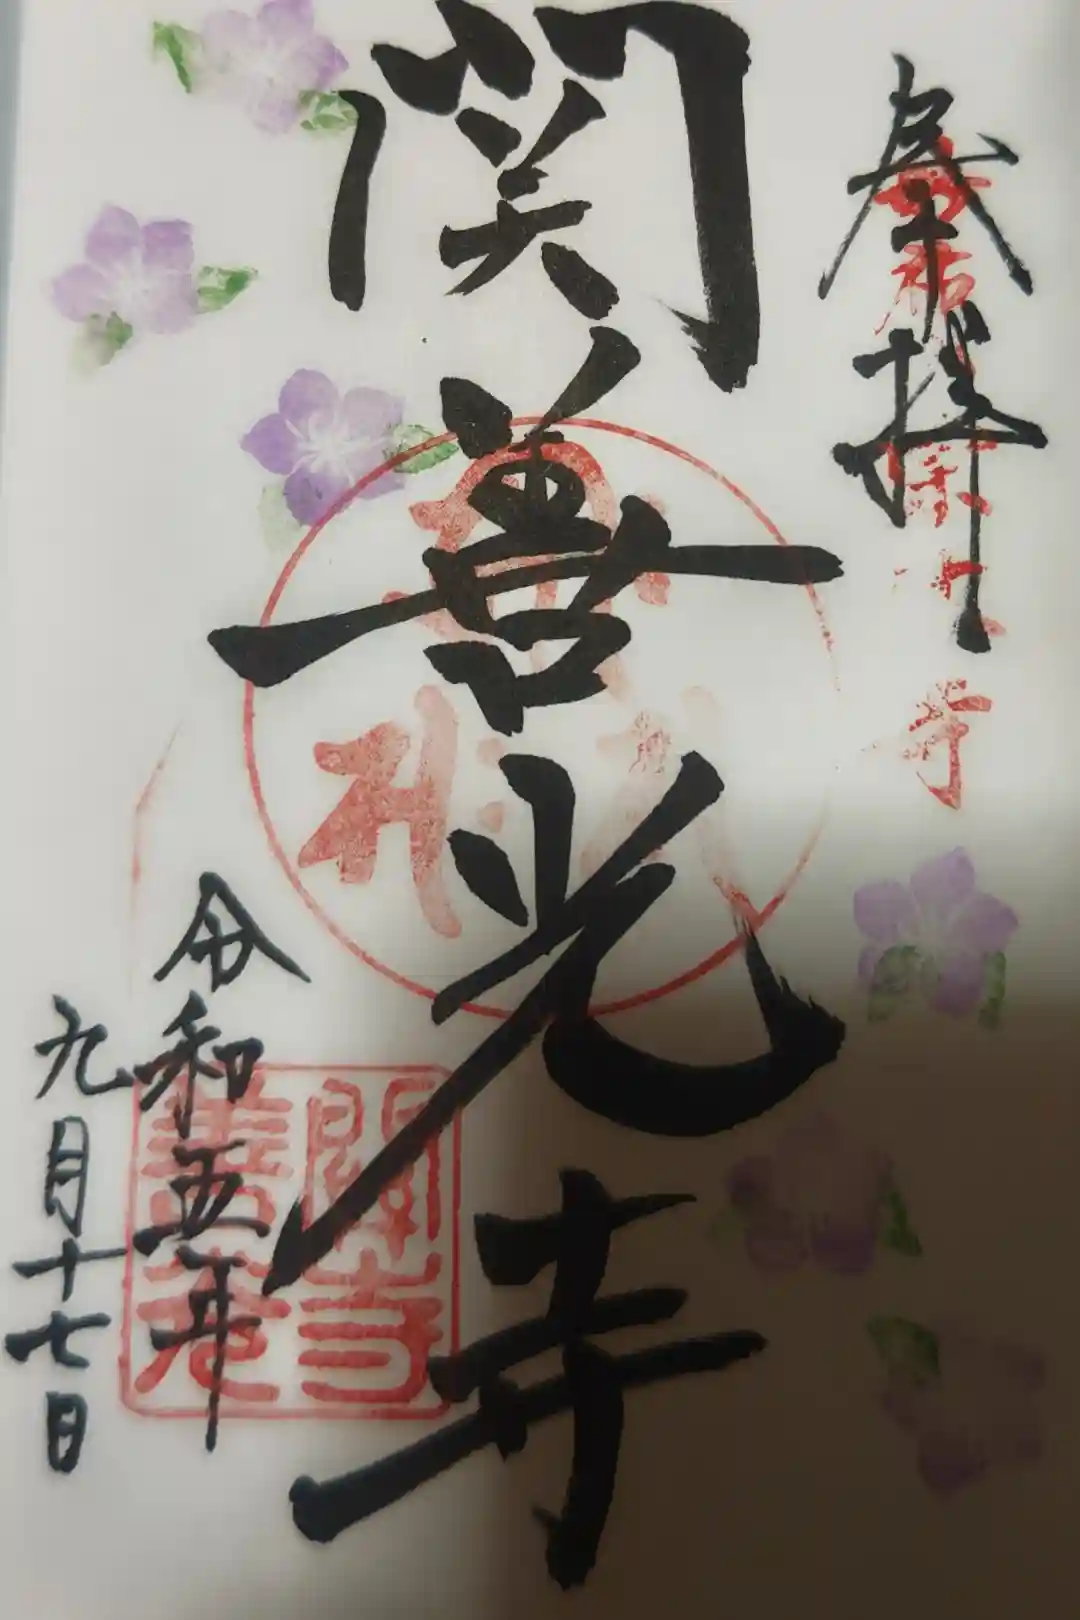 奉拝
関善光寺
令和五年
九月十七日
関善光寺